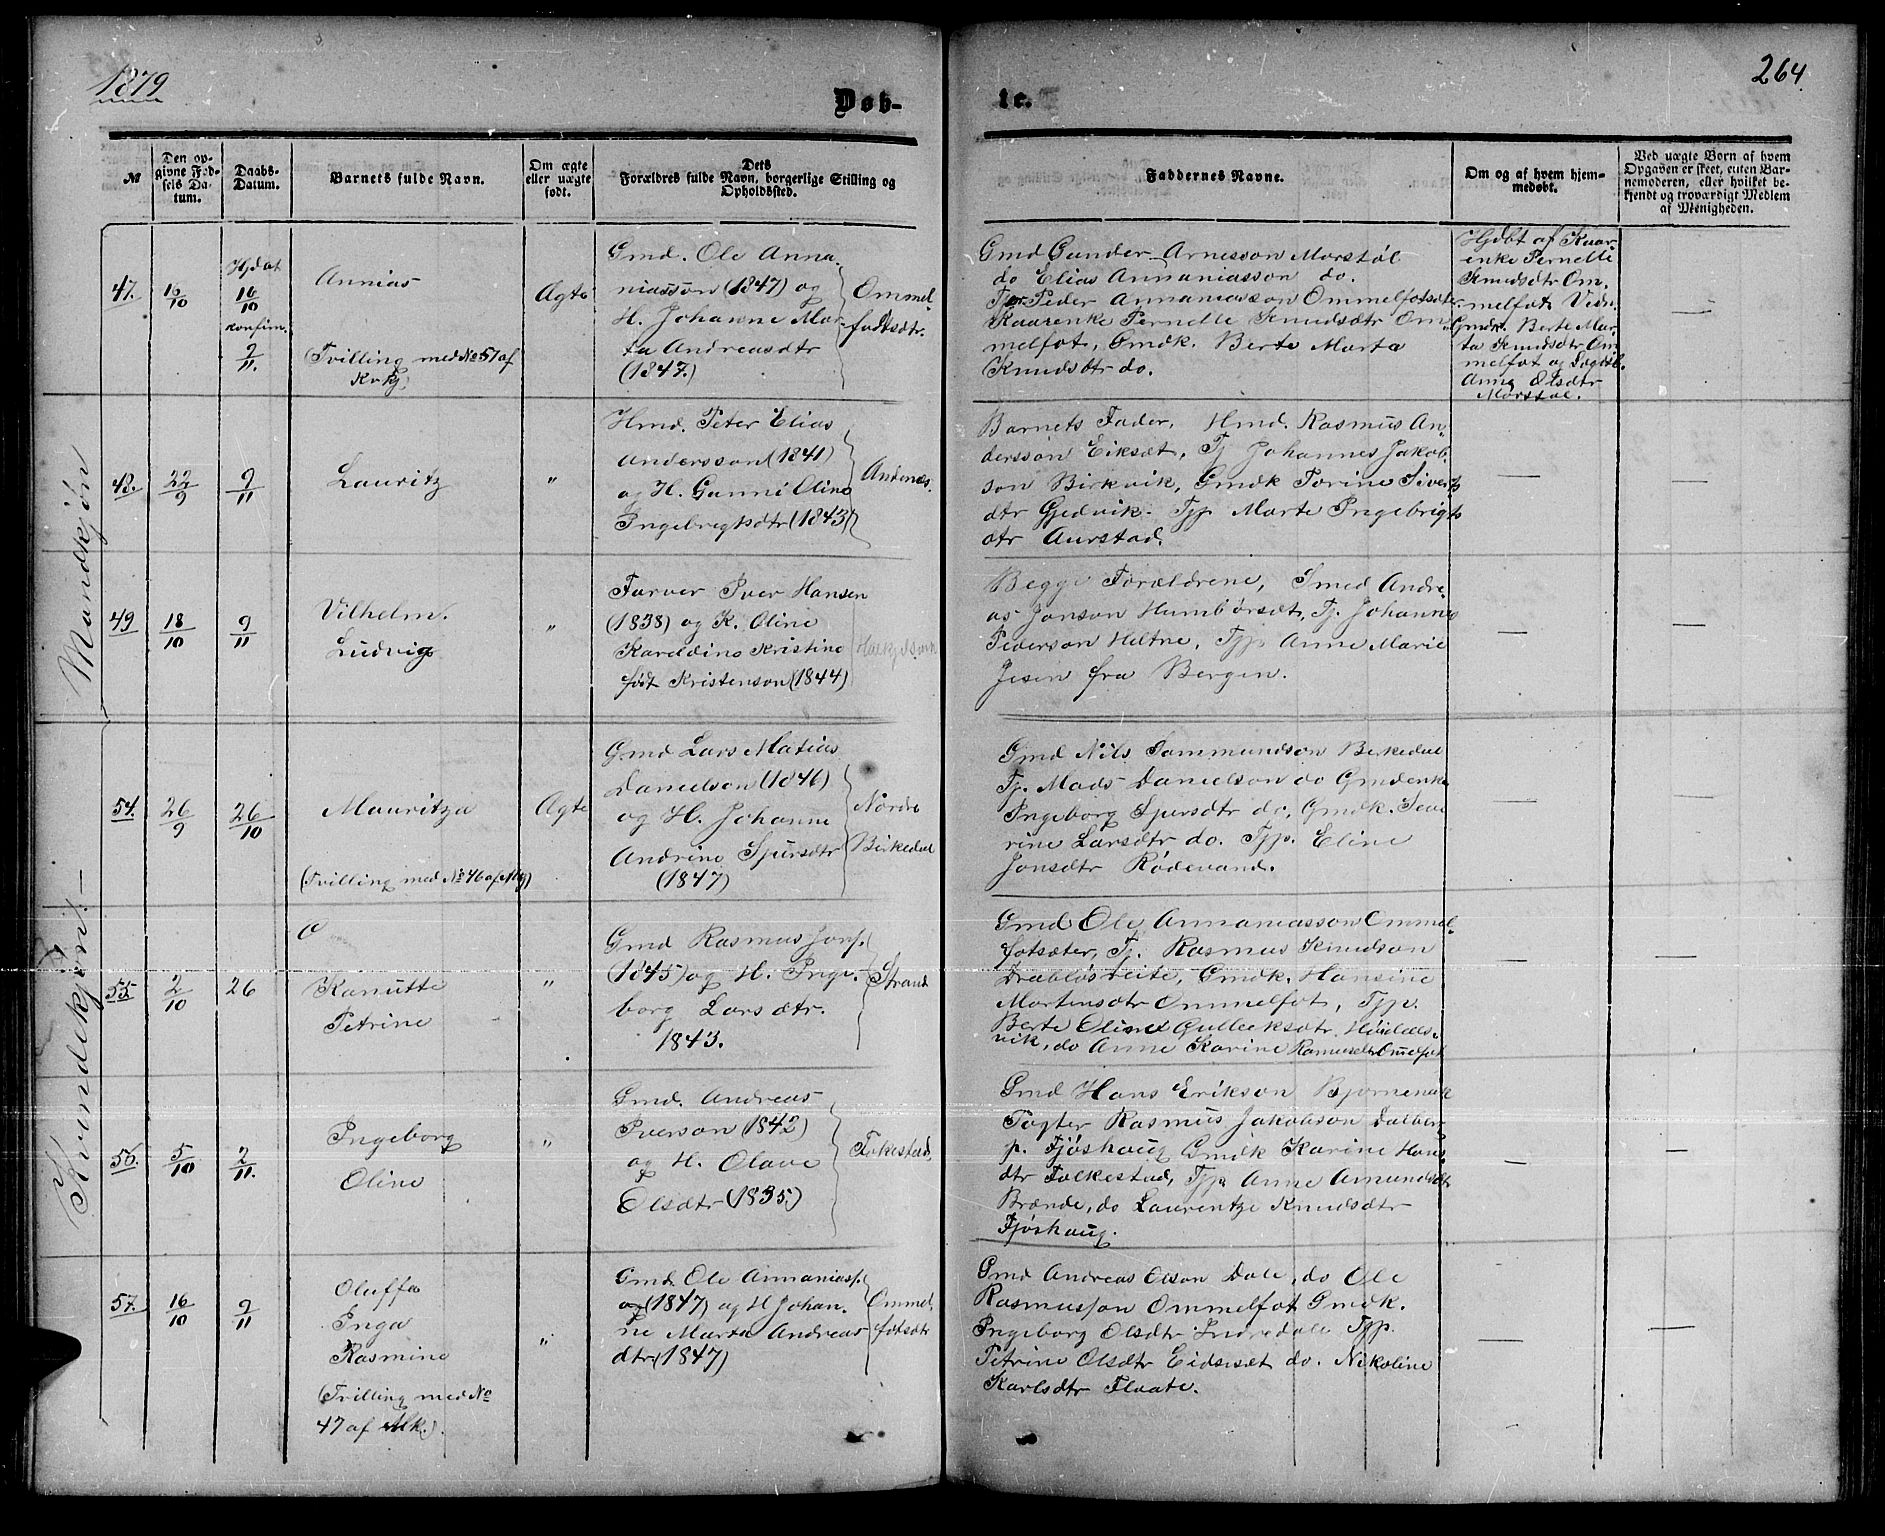 1879
264.
Døb-
te.
№
Den op-
givne Fød-
sels Da-
tum.
Daabs-
Datum.
Barnets fulde Navn.
Om ægte
eller uægte
født.
Dets
Forældres fulde Navn, borgerlige Stilling og
Opholdssted.
Faddernes Navne.
Om og af hvem hjem-
medøbt.
Ved uægte Børn af hvem
Opgaven er skeet, enten Bar-
nemoderen, eller hvilket be-
kjendt og troværdigt Medlem
af Menigheden.
Mandkjøn
47.
16/10
Hjdøbt
16/10
konfirm.
9/11.
Annias
(Tvilling med No 57 af
Kvkj)
Ægte
Gmd. Ole Anna-
niasson (1847) og
H. Johanne Mar-
ta Andreasdtr
(1847.)
Ommel-
fodtsdtr.
Gmd Gunder Arnesson Morstøl
do Elias Annaniasson do.
Tj. Peder Annaniasson Ommelfotsæter
Kaarenke Pernelle Knudsdtr Om-
melfot, Gmdk. Berte Marta
Knudsdtr do.
Hjdbt af Kaar-
enke Pernelle
Knudsdtr Om-
melfot. Vidn.
Gmdk. Berte Mar-
ta Knudsdtr Om
melfot og
Anne Olsdtr
Morstøl.
—
48.
22/9
9/11
Lauritz
"
Hmd. Peter Elias
Andersson (1841)
og H. Gunni Oline
Ingebregtsdtr (1843)
Andenæs.
Barnets Fader, Hmd. Rasmus An-
dersson Eiksæt, Tj Johannes Jakob-
son Birkvik, Gmdk Torine Siverts
dtr Gjedvik. Tjp Marte Ingebrigts
dtr Aurstad.
—
—
49
18/10
9/11
Vilhelm
Ludvig
"
Farver Iver Hansen
(1838) og K. Oline
Kareldine Kristine
født Kristenson (1844)
Begge Forældrene, Smed Andre-
as Jonson Humbørsæt, Tj. Johannes
Pederson Heltne, Tjp Anne Marie
Jesen fra Bergen.
—
—
Kvindekjøn. —
54.
26/9
26/10
Mauritza
(Tvilling med No 46 af Mkj)
Ægte
Gmd Lars Matias
Danielson (1846)
og H. Johanne
Andrine Spersdtr
(1847)
Nordre
Birkedal
Gmd Nils Sammundson Birkedal
Tj. Mads Danielson do Gmdenke
Ingeborg Spersdtr do, Gmdk. Seve
rine Larsdtr do. Tjp. Eline
Jonsdtr Rødevand.
—
—
55
2/10
26
Kanutte
Petrine
"
Gmd Rasmus Jons.
(1845) og H. Inge-
borg Larsdtr.
1843.
Strand
Gmd Ole Annaniasson Ommel-
fotsæter, Tj. Rasmus Knudson
Drabløsreite, Gmdk. Hansine
Martensdtr Ommelfot, Tjp.
Berte Oline Gulleiksdtr, Høidals-
vik, do Anne Karine Rasmusdtr Ommelfot
—
—
56.
5/10
2/11.
Ingeborg
Oline
"
Gmd. Andreas
Iverson (1842)
og H. Olave
Olsdtr (1835)
Folkestad.
Gmd Hans Erikson Bjørnenak
Fogter Rasmus Jakobson Dalberg
p. Fjøshaug Gmdk Karine Hans
dtr Folkestad, Tjp Anne Amundsdtr
Brænde, do Laurentze Knudsdtr
Fjøshaug.
—
—
57.
16/10
9/11
Oluffa
Inga
Rasmine
(Tvilling med No
47 af Mk.)
"
Gmd. Ole Annanias.
og (1847) og H Johan-
ne Marta Andreas
dtr (1847)
Ommel-
fotsdtr
Gmd Andreas Olson Dale, do Ole
Rasmusson Ommelfot Gmdk.
Ingeborg Olsdtr Indredale Tjp.
Petrine Olsdtr Eidsesæt do. Nikoline
Karlsdtr Flaate.
—
—